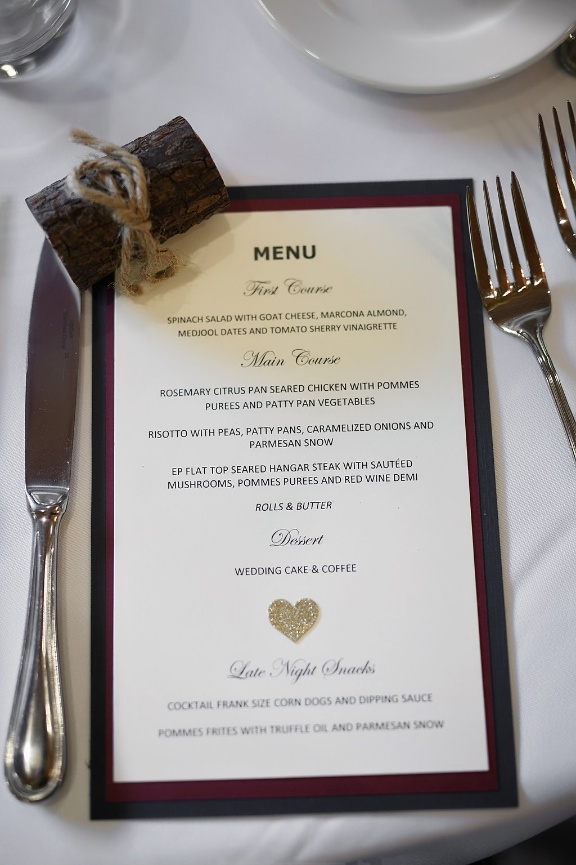 MENU
First Course
SPINACH SALAD WITH GOAT CHEESE, MARCONA ALMOND,
MEDJOOL DATES AND TOMATO SHERRY VINAIGRETTE
Main Course
ROSEMARY CITRUS PAN SEARED CHICKEN WITH POMMES
PUREES AND PATTY PAN VEGETABLES
RISOTTO WITH PEAS, PATTY PANS, CARAMELIZED ONIONS AND
PARMESAN SNOW
EP FLAT TOP SEARED HANGAR STEAK WITH SAUTÉED
MUSHROOMS, POMMES PUREES AND RED WINE DEMI
ROLLS & BUTTER
Dessert
WEDDING CAKE & COFFEE
Late Night Snacks
COCKTAIL FRANK SIZE CORN DOGS AND DIPPING SAUCE
POMMES FRITES WITH TRUFFLE OIL AND PARMESAN SNOW